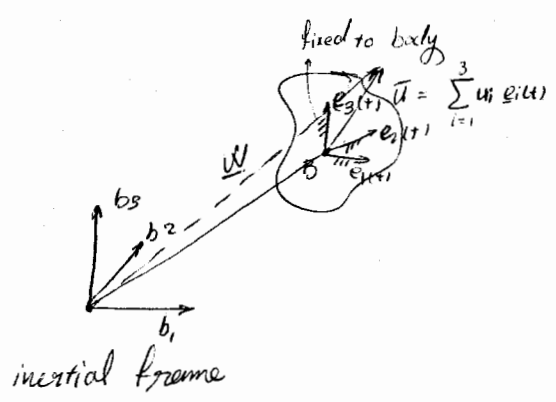 fixed to body
e₃(t) ū = ∑ᵢ₌₁³ uᵢ eᵢ(t)
e₂(t)
B
e₁(t)
b3
b2
b₁
inertial frame